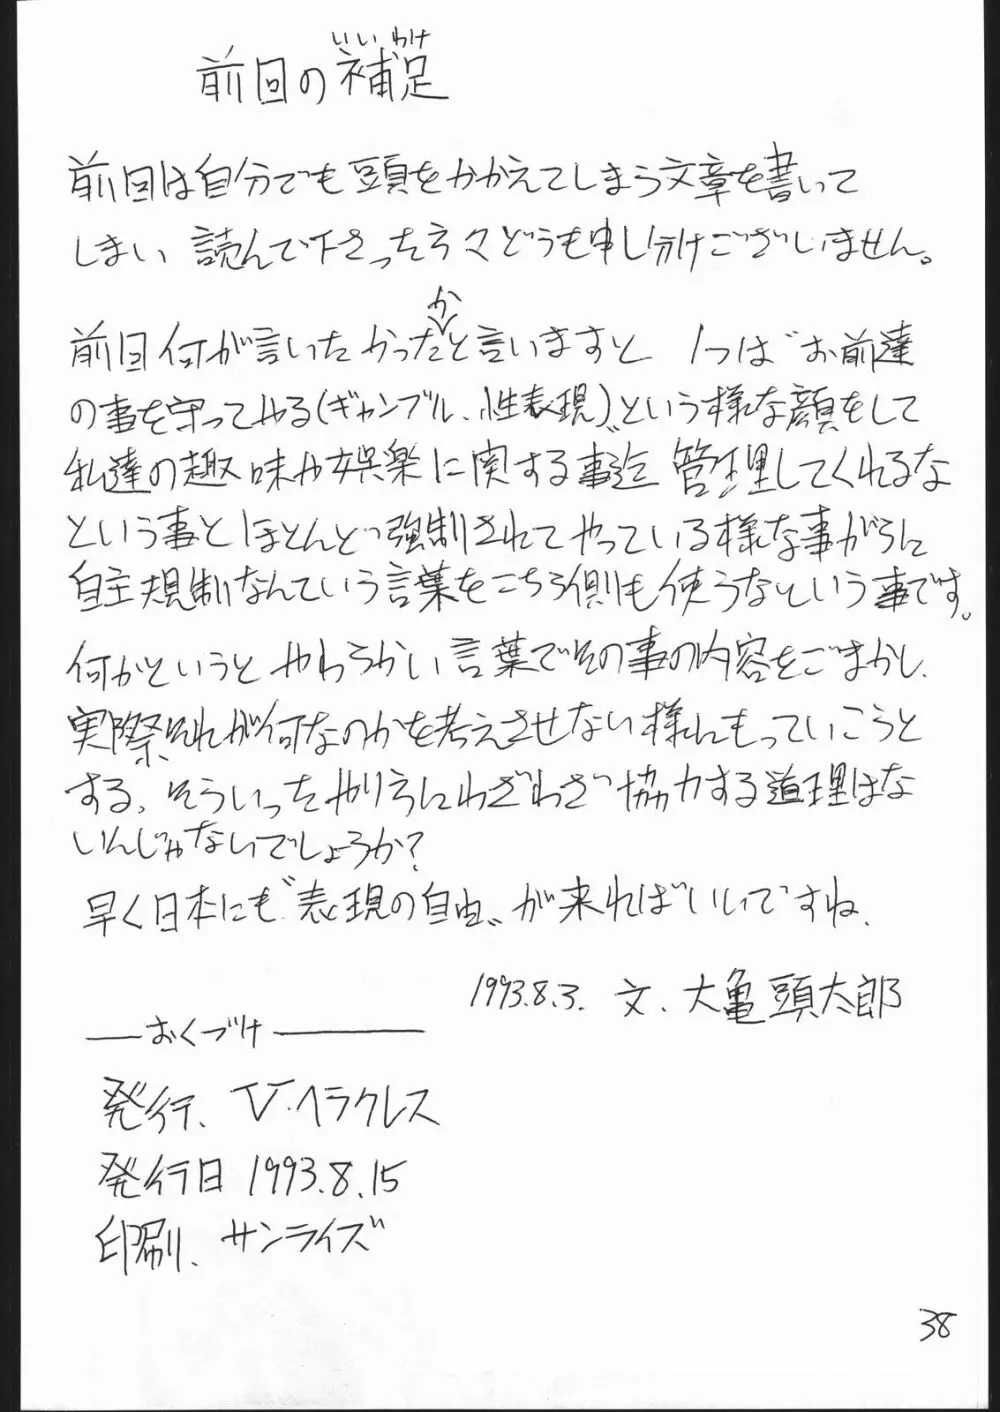 いいわけ
前回の補足
前回は自分でも頭をかかえてしまう文章を書いて
しまい 読んで下さった方々どうも申し分けございません。
か
前回何が言いたかったと言いますと 1つは〝お前達
の事を守ってやる(ギャンブル、性表現)〟という様な顔をして
私達の趣味や娯楽に関する事迄管理してくれるな
という事と ほとんど強制されてやっている様な事がらに
自主規制なんていう言葉をこちら側も使うなという事です。
何かというと やわらかい言葉でその事の内容をごまかし、
実際それが何なのかを考えさせない様にもっていこうと
する、そういったやり方にわざわざ協力する道理はな
いんじゃないでしょうか?
早く日本にも〝表現の自由〟が来ればいいですね、
1993.8.3. 文、大亀頭太郎
おくづけ
発行、V.ヘラクレス
発行日 1993.8.15
印刷、サンライズ
38